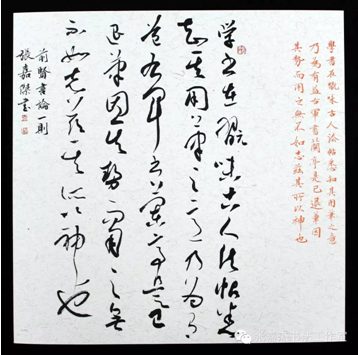 學書在翫味古人法帖悉知其用筆之意
乃為有益右軍書蘭亭是已退筆因
其勢而用之無不如志茲其所以神也
学书在翫味古人法帖悉
知其用筆之意乃為有
益右軍書蘭亭是已
退筆因其勢而用之無
不如志茲其所以神也
前賢書論一則
嘉傑書